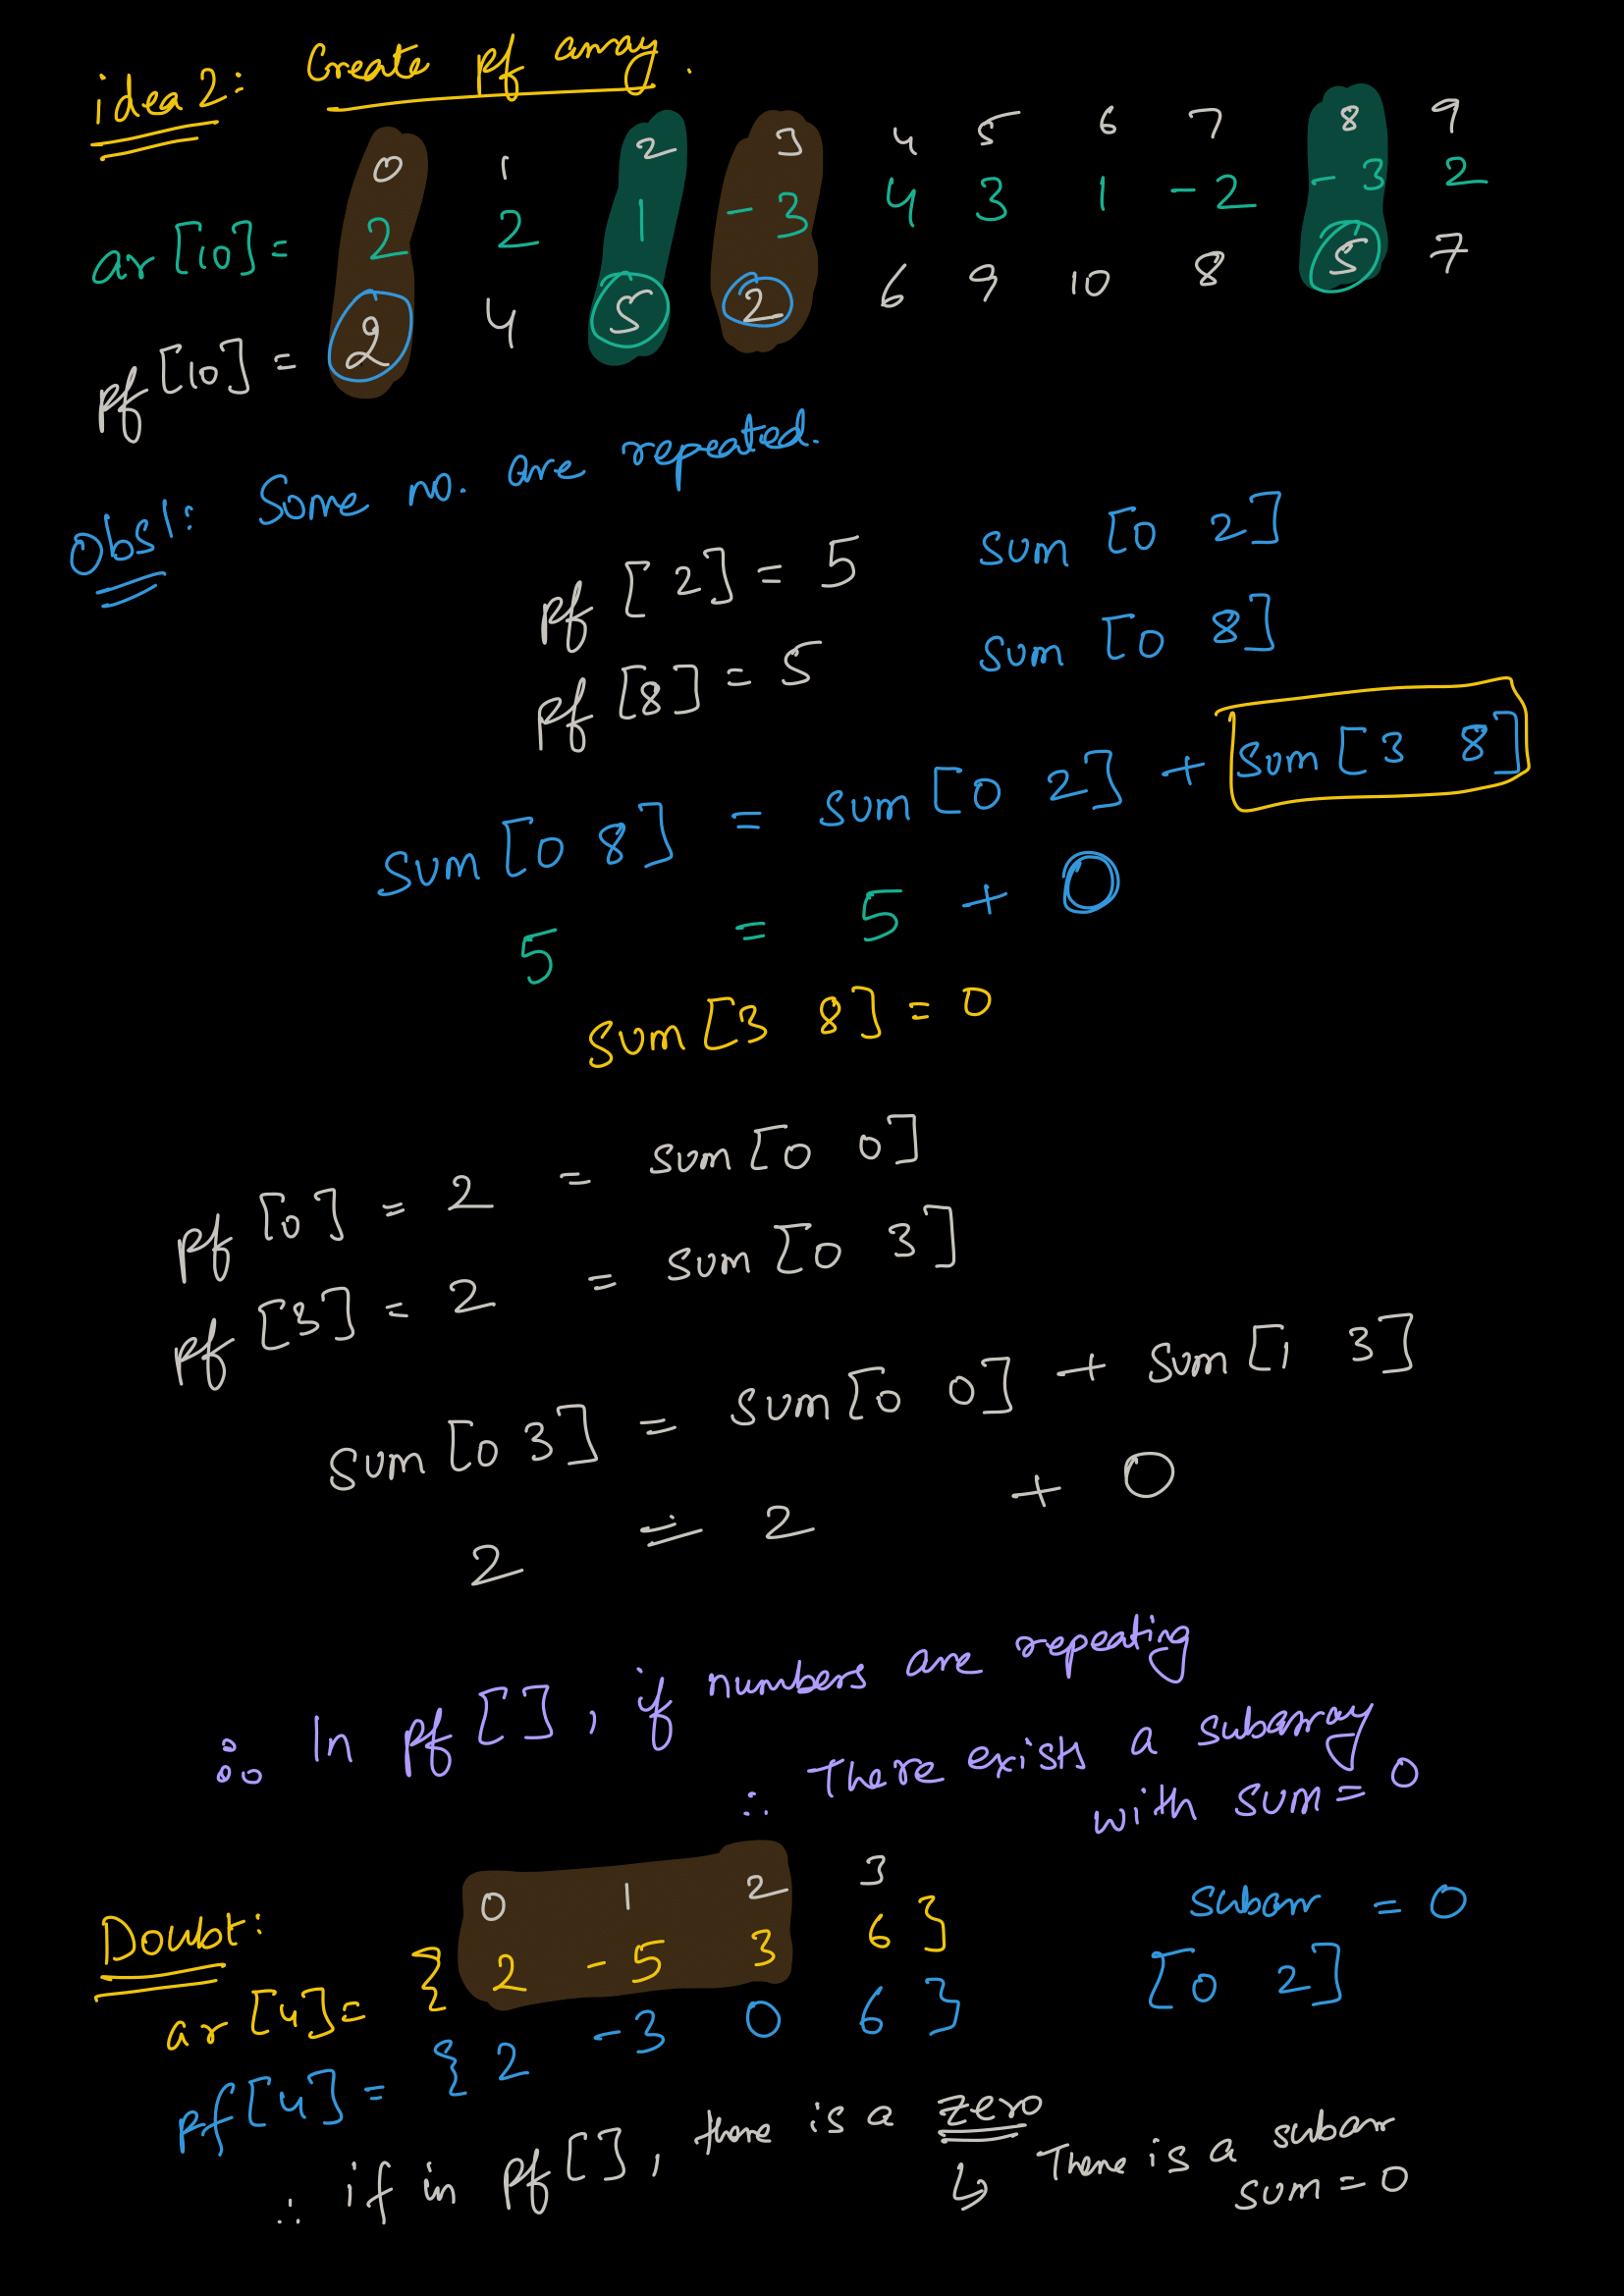 idea 2: Create pf array.
0 1 2 3 4 5 6 7 8 9
ar [10] = 2 2 1 -3 4 3 1 -2 -3 2
pf [10] = 2 4 5 2 6 9 10 8 5 7
Obs1: Some no. are repeated.
pf [2] = 5 sum [0 2]
pf [8] = 5 sum [0 8]
sum [0 8] = sum [0 2] + sum [3 8]
5 = 5 + 0
sum [3 8] = 0
pf [0] = 2 = sum [0 0]
pf [3] = 2 = sum [0 3]
sum [0 3] = sum [0 0] + sum [1 3]
2 = 2 + 0
∴ In pf [ ], if numbers are repeating
∴ There exists a subarray
with sum = 0
Doubt:
0 1 2 3
ar [4] = { 2 -5 3 6 } subarr = 0
pf [4] = { 2 -3 0 6 } [0 2]
∴ if in pf [ ], there is a zero
↳ There is a subarr
sum = 0